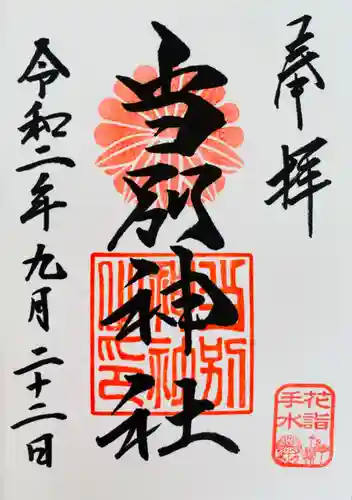 奉拝
当別神社
令和二年九月二十二日
当別
神社
之印
花詣
手水